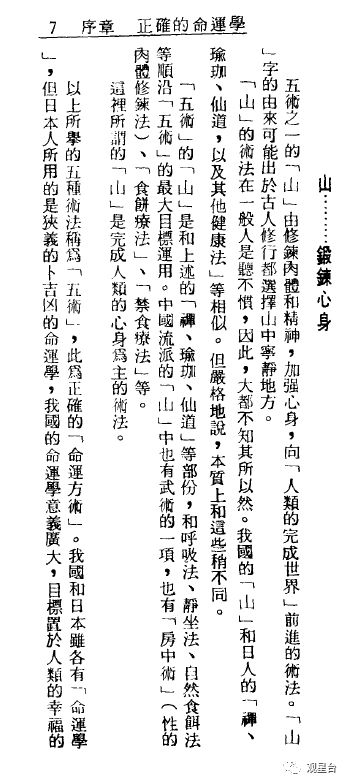 7　序章　正確的命運學
山………鍛鍊心身
五術之一的「山」由修鍊肉體和精神，加强心身，向「人類的完成世界」前進的術法。「山
」字的由來可能出於古人修行都選擇山中寧靜地方。
「山」的術法在一般人是聽不慣，因此，大都不知其所以然。我國的「山」和日人的「禪、
瑜珈、仙道，以及其他健康法」等相似。但嚴格地說，本質上和這些稍不同。
「五術」的「山」是和上述的「禪、瑜珈、仙道」等部份，和呼吸法、靜坐法、自然食餌法
等順沿「五術」的最大目標運用。中國流派的「山」中也有武術的一項，也有「房中術」（性的
肉體修鍊法）、「食餅療法」、「禁食療法」等。
這裡所謂的「山」是完成人類的心身爲主的術法。
以上所擧的五種術法稱爲「五術」，此爲正確的「命運方術」。我國和日本雖各有「命運學
」，但日本人所用的是狹義的卜吉凶的命運學，我國的命運學意義廣大，目標置於人類的幸福的
观星台